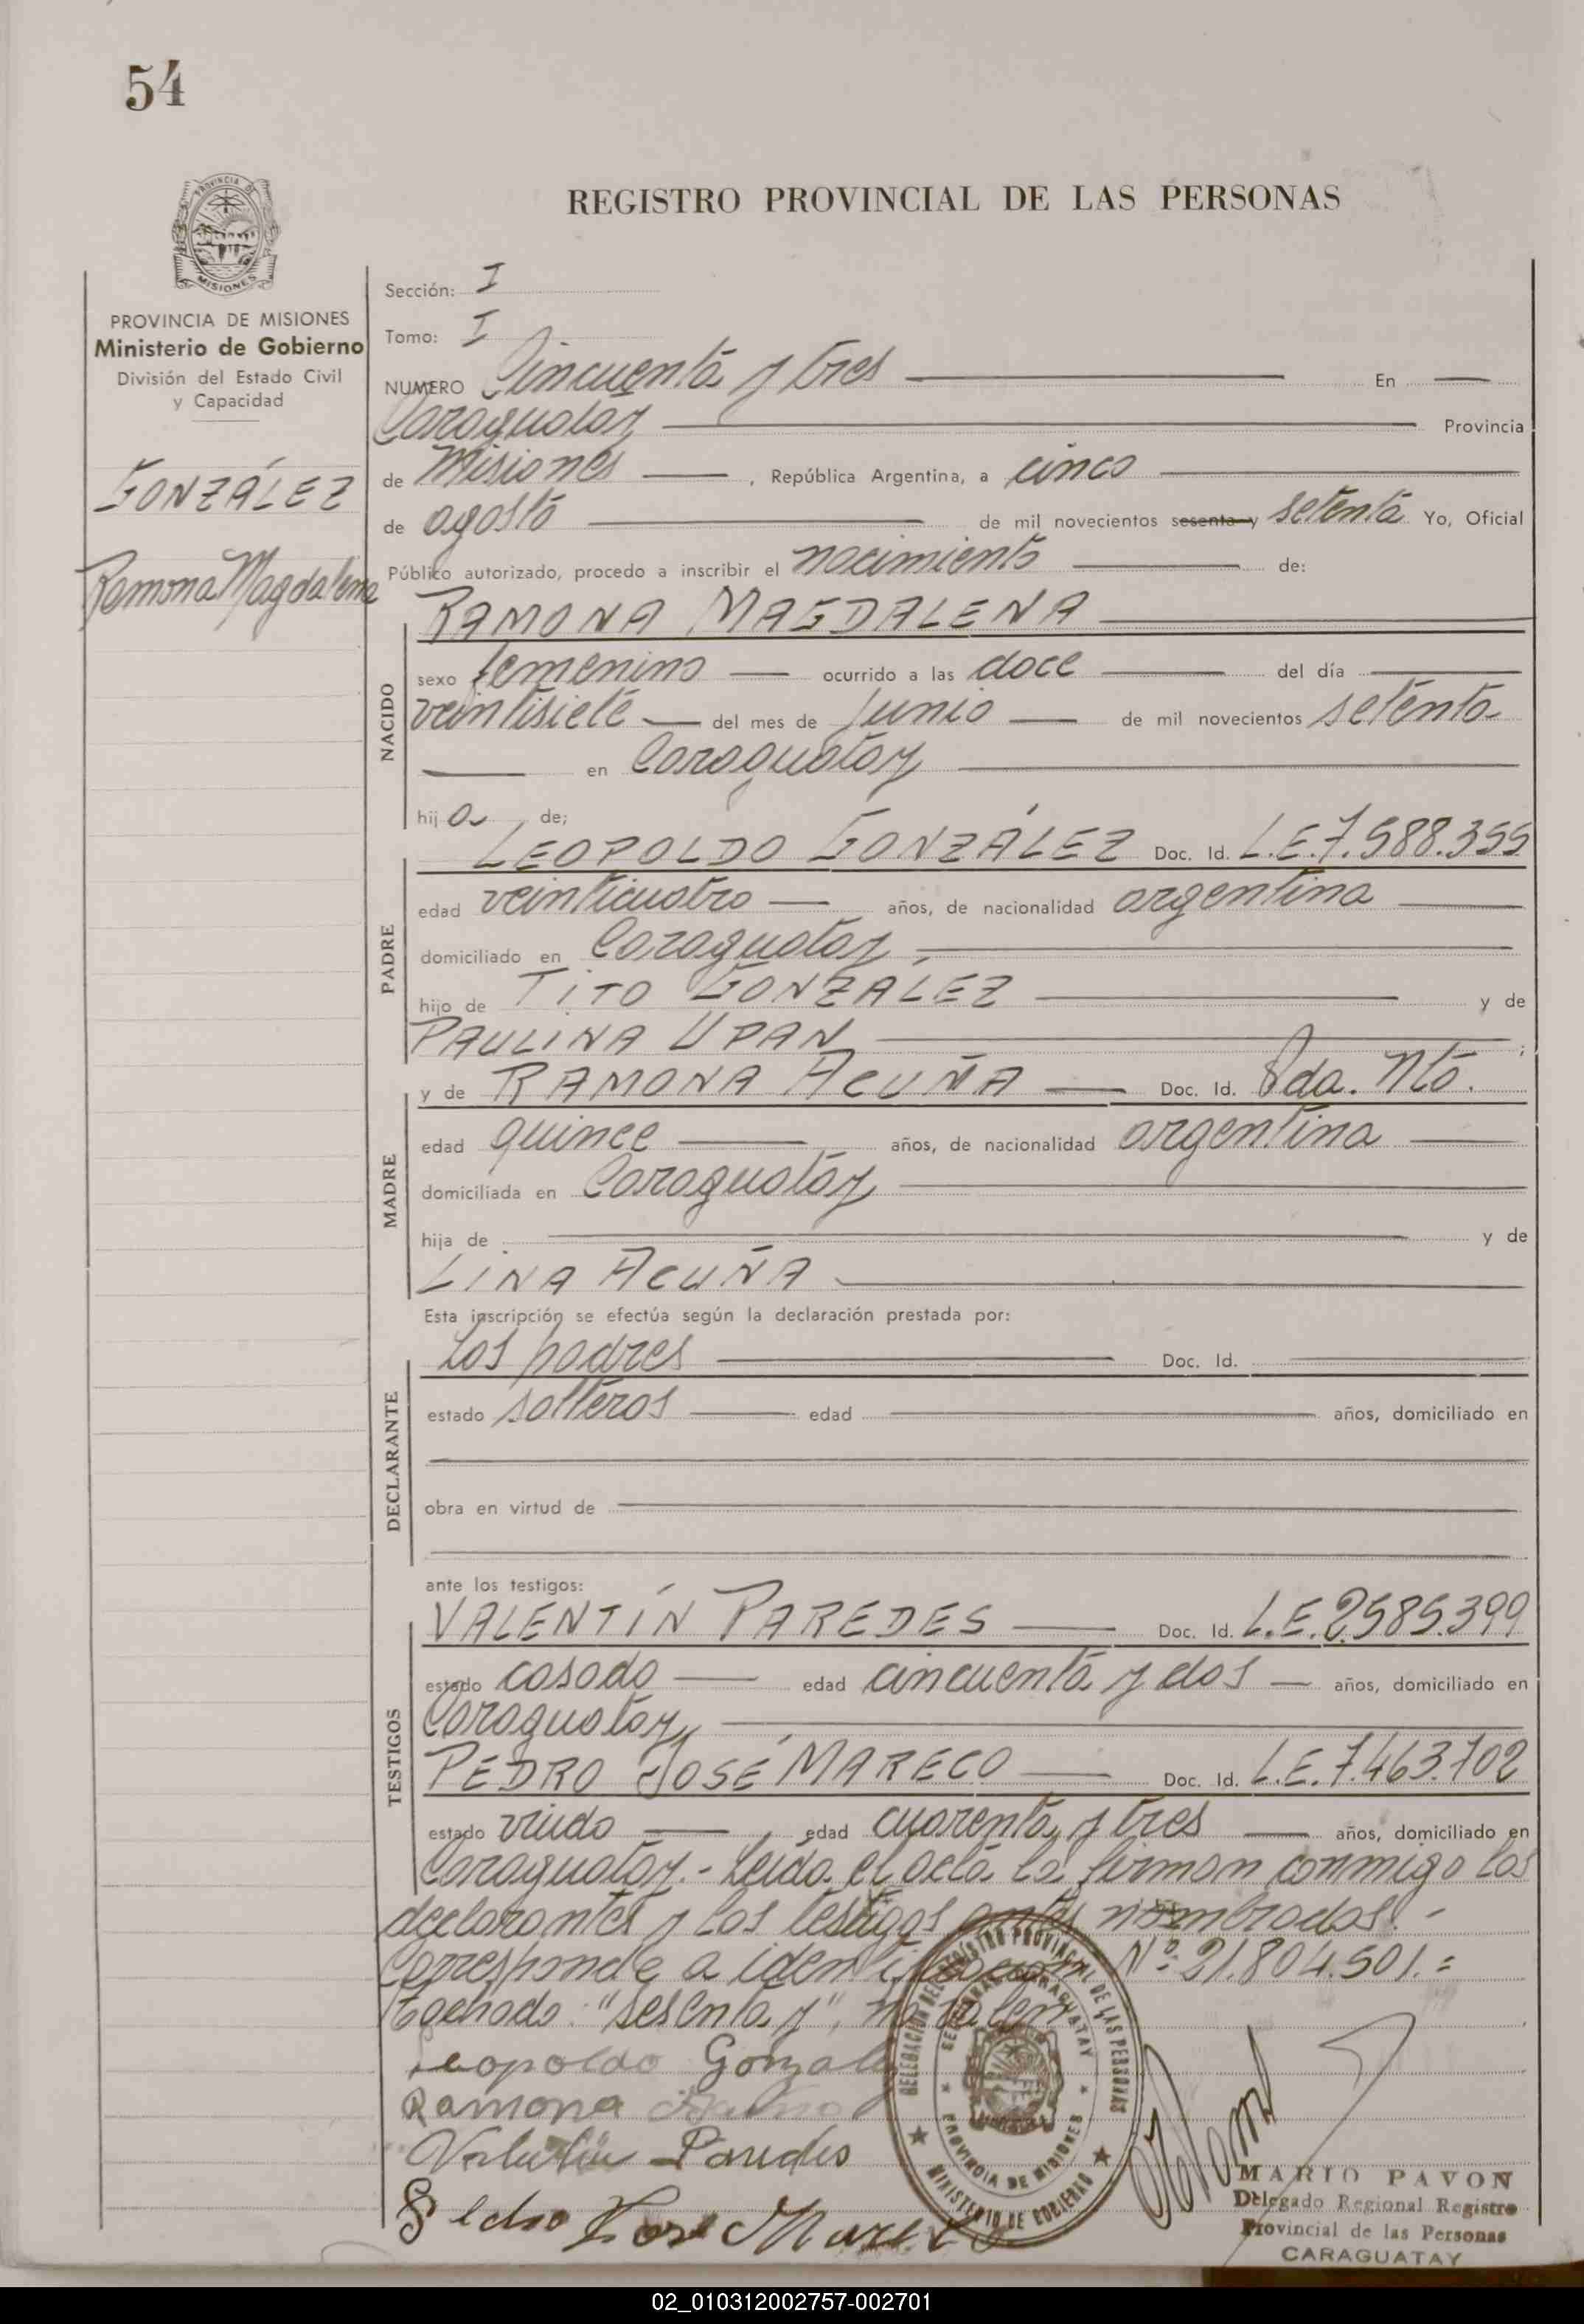 54
PROVINCIA DE
MISIONES
REGISTRO PROVINCIAL DE LAS PERSONAS
PROVINCIA DE MISIONES
Ministerio de Gobierno
División del Estado Civil
y Capacidad
GONZÁLEZ
Ramona Magdalena
Sección: I
Tomo: I
NUMERO Cincuenta y tres En
Caraguatay Provincia
de Misiones , República Argentina, a cinco
de agosto de mil novecientos sesenta y setenta Yo, Oficial
Público autorizado, procedo a inscribir el nacimiento de:
NACIDO
RAMONA MAGDALENA
sexo femenino ocurrido a las doce del día
veintisiete del mes de junio de mil novecientos setenta
en Caraguatay
hija de;
PADRE
LEOPOLDO GONZÁLEZ Doc. Id. L.E.7.588.355
edad veinticuatro años, de nacionalidad argentina
domiciliado en Caraguatay
hijo de TITO GONZÁLEZ y de
PAULINA UPAN ;
MADRE
y de RAMONA ACUÑA Doc. Id. Pda. Nto.
edad quince años, de nacionalidad argentina
domiciliada en Caraguatay
hija de y de
LINA ACUÑA
Esta inscripción se efectúa según la declaración prestada por:
DECLARANTE
Los padres Doc. Id.
estado solteros edad años, domiciliado en
obra en virtud de
ante los testigos:
TESTIGOS
VALENTÍN PAREDES Doc. Id. L.E.2.585.399
estado casado edad cincuenta y dos años, domiciliado en
Caraguatay
PEDRO JOSÉ MARECO Doc. Id. L.E.7.463.702
estado viudo , edad cuarenta y tres años, domiciliado en
Caraguatay.- Leída el acta la firman conmigo los
declarantes y los testigos antes nombrados.-
Corresponde a identificación Nº 21.804.501.=
Tachado: "sesenta y", no valen
Leopoldo Gonzalez
Ramona
Valentin Paredes
Pedro Jose Mareco
DELEGACION DEL REGISTRO PROVINCIAL DE LAS PERSONAS
CARAGUATAY
PROVINCIA DE MISIONES
MINISTERIO DE GOBIERNO
MARIO PAVON
Delegado Regional Registro
Provincial de las Personas
CARAGUATAY
02_010312002757-002701